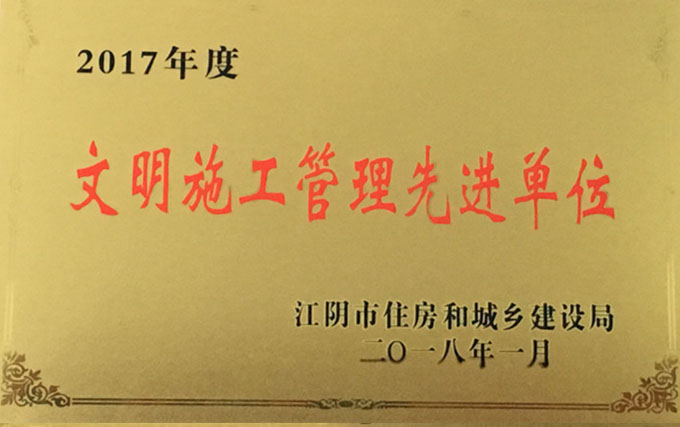 2017年度
文明施工管理先进单位
江阴市住房和城乡建设局
二〇一八年一月